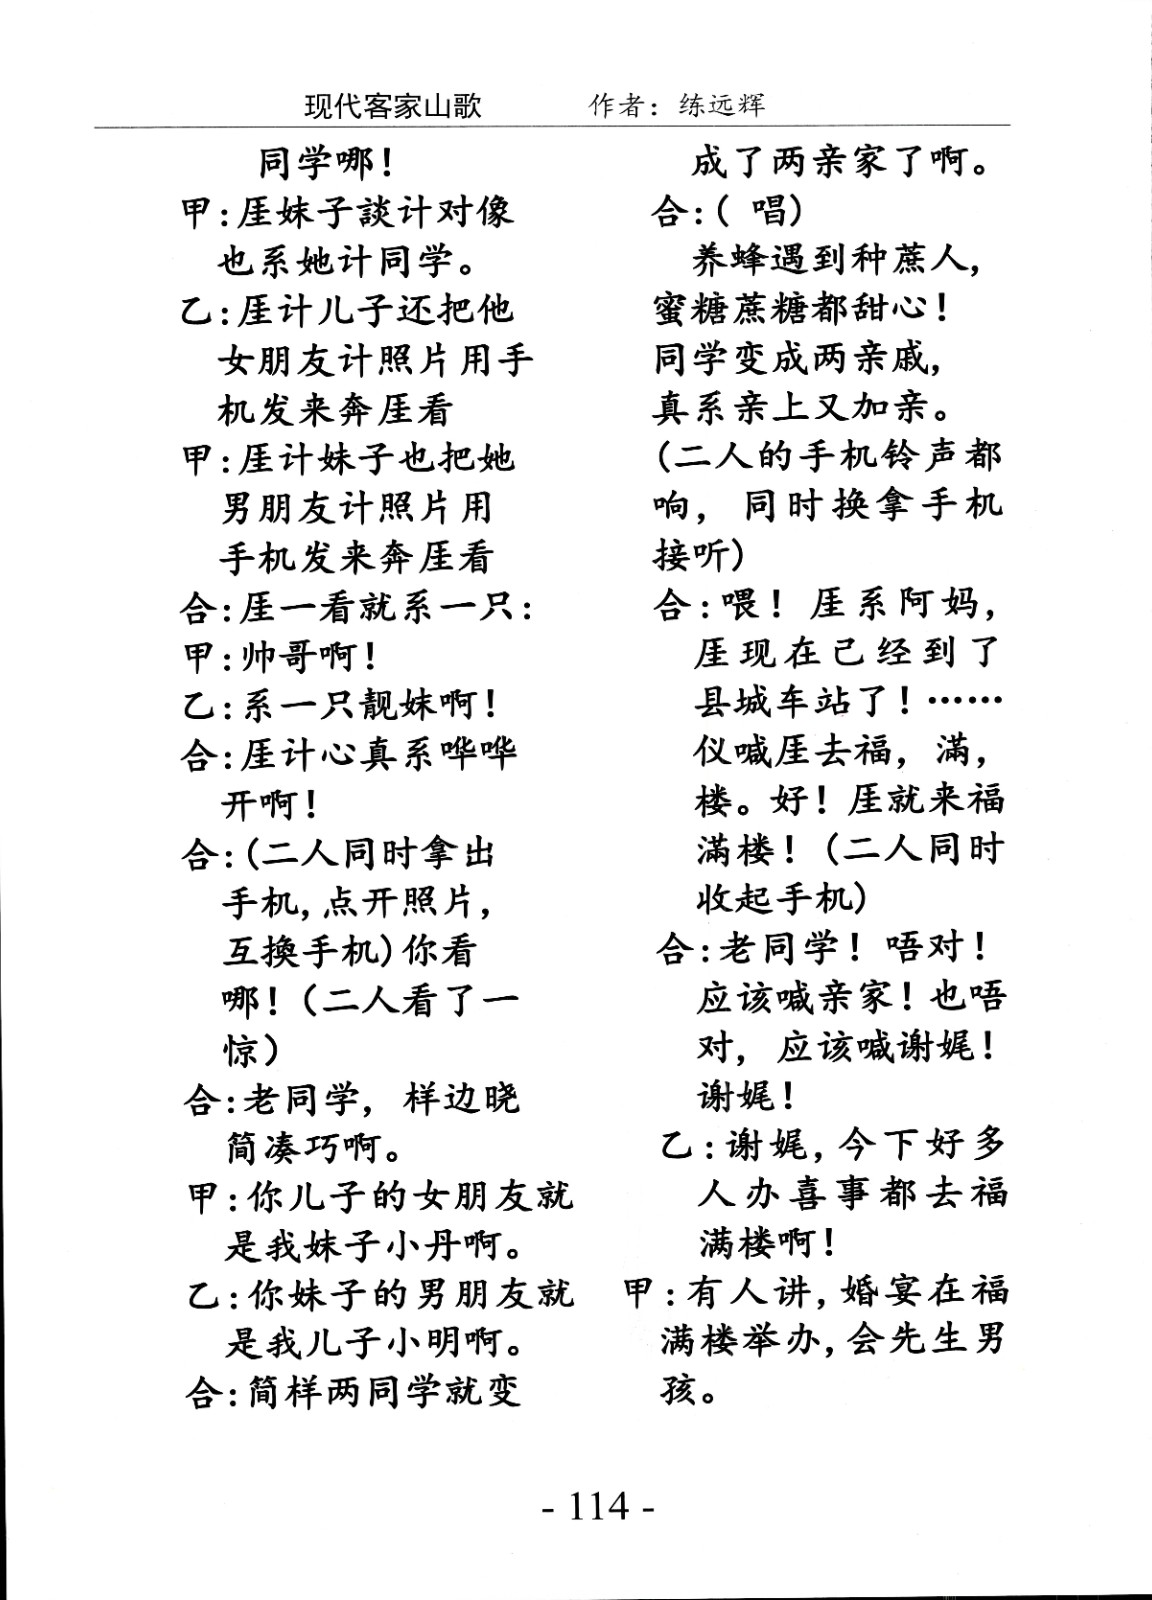 现代客家山歌 作者：练远辉
同学哪！
甲：厓妹子談计对像
也系她计同学。
乙：厓计儿子还把他
女朋友计照片用手
机发来奔厓看
甲：厓计妹子也把她
男朋友计照片用
手机发来奔厓看
合：厓一看就系一只：
甲：帅哥啊！
乙：系一只靓妹啊！
合：厓计心真系哗哗
开啊！
合：（二人同时拿出
手机，点开照片，
互換手机）你看
哪！（二人看了一
惊）
合：老同学，样边晓
简凑巧啊。
甲：你儿子的女朋友就
是我妹子小丹啊。
乙：你妹子的男朋友就
是我儿子小明啊。
合：简样两同学就变
成了两亲家了啊。
合：（ 唱）
养蜂遇到种蔗人，
蜜糖蔗糖都甜心！
同学变成两亲戚，
真系亲上又加亲。
（二人的手机铃声都
响，同时换拿手机
接听）
合：喂！厓系阿妈，
厓现在己经到了
县城车站了！……
仪喊厓去福，滿，
楼。好！厓就来福
滿楼！（二人同时
收起手机）
合：老同学！唔对！
应该喊亲家！也唔
对，应该喊谢娓！
谢娓！
乙：谢娓，今下好多
人办喜事都去福
满楼啊！
甲：有人讲，婚宴在福
满楼举办，会先生男
孩。
- 114 -